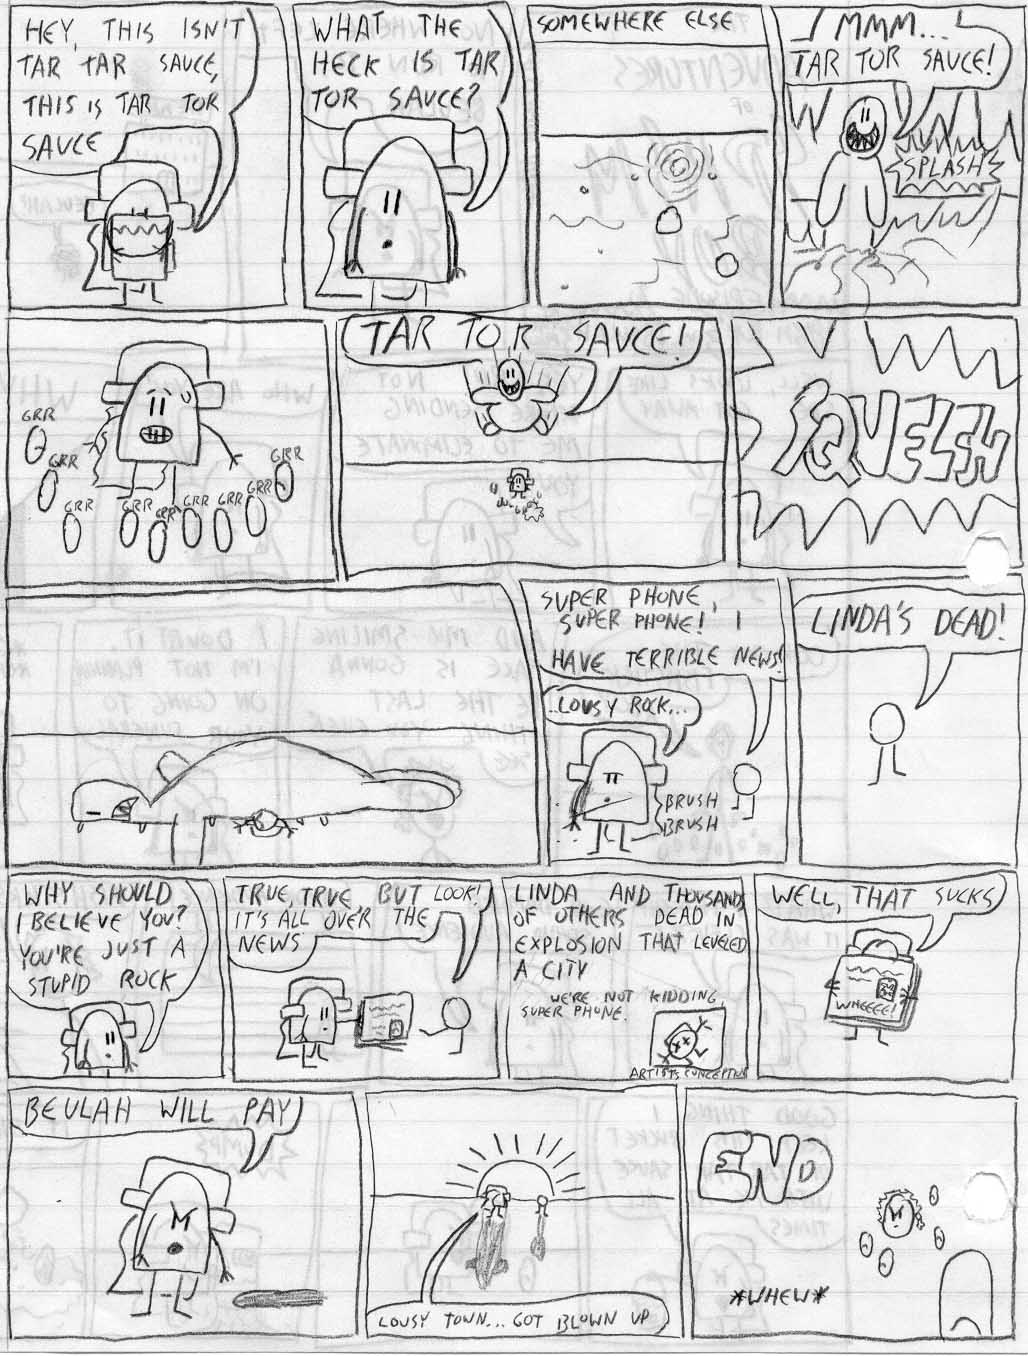 HEY, THIS ISN'T
TAR TAR SAUCE,
THIS IS TAR TOR
SAUCE
WHAT THE
HECK IS TAR
TOR SAUCE?
SOMEWHERE ELSE
MMM...
TAR TOR SAUCE!
SPLASH
GRR
GRR
GRR
GRR
GRR
GRR
GRR
GRR
GRR
TAR TOR SAUCE!
SQUELSH
SUPER PHONE,
SUPER PHONE! I
HAVE TERRIBLE NEWS!
..LOUSY ROCK...
BRUSH
BRUSH
LINDA'S DEAD!
WHY SHOULD
I BELIEVE YOU?
YOU'RE JUST A
STUPID ROCK
TRUE, TRUE, BUT LOOK!
IT'S ALL OVER THE
NEWS
LINDA AND THOUSANDS
OF OTHERS DEAD IN
EXPLOSION THAT LEVELED
A CITY
WE'RE NOT KIDDING,
SUPER PHONE.
ARTISTS CONCEPTION
WELL, THAT SUCKS
WHEEEE!
BEULAH WILL PAY
LOUSY TOWN... GOT BLOWN UP
END
*WHEW*